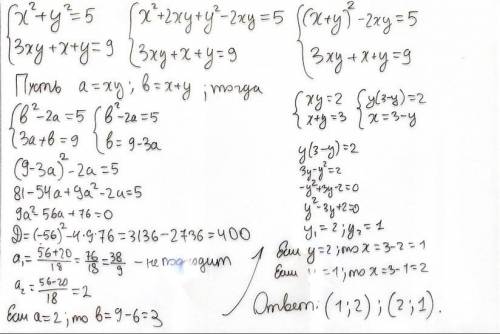 {x²+y²=5
3xy+x+y=9
{x²+2xy+y²-2xy=5
3xy+x+y=9
{(x+y)²-2xy=5
3xy+x+y=9
Пусть a=xy; b=x+y; тогда
{b²-2a=5
3a+b=9
{b²-2a=5
b=9-3a
(9-3a)²-2a=5
81-54a+9a²-2a=5
9a²-56a+76=0
D=(-56)²-4·9·76=3136-2736=400
a₁=(56+20)/18=76/18=38/9 - не подходит
a₂=(56-20)/18=2
Если a=2; то b=9-6=3
{xy=2
x+y=3
{y(3-y)=2
x=3-y
y(3-y)=2
3y-y²=2
-y²+3y-2=0
y²-3y+2=0
y₁=2; y₂=1
Если y=2; то x=3-2=1
Если =1; то x=3-1=2
Ответ: (1;2); (2;1).